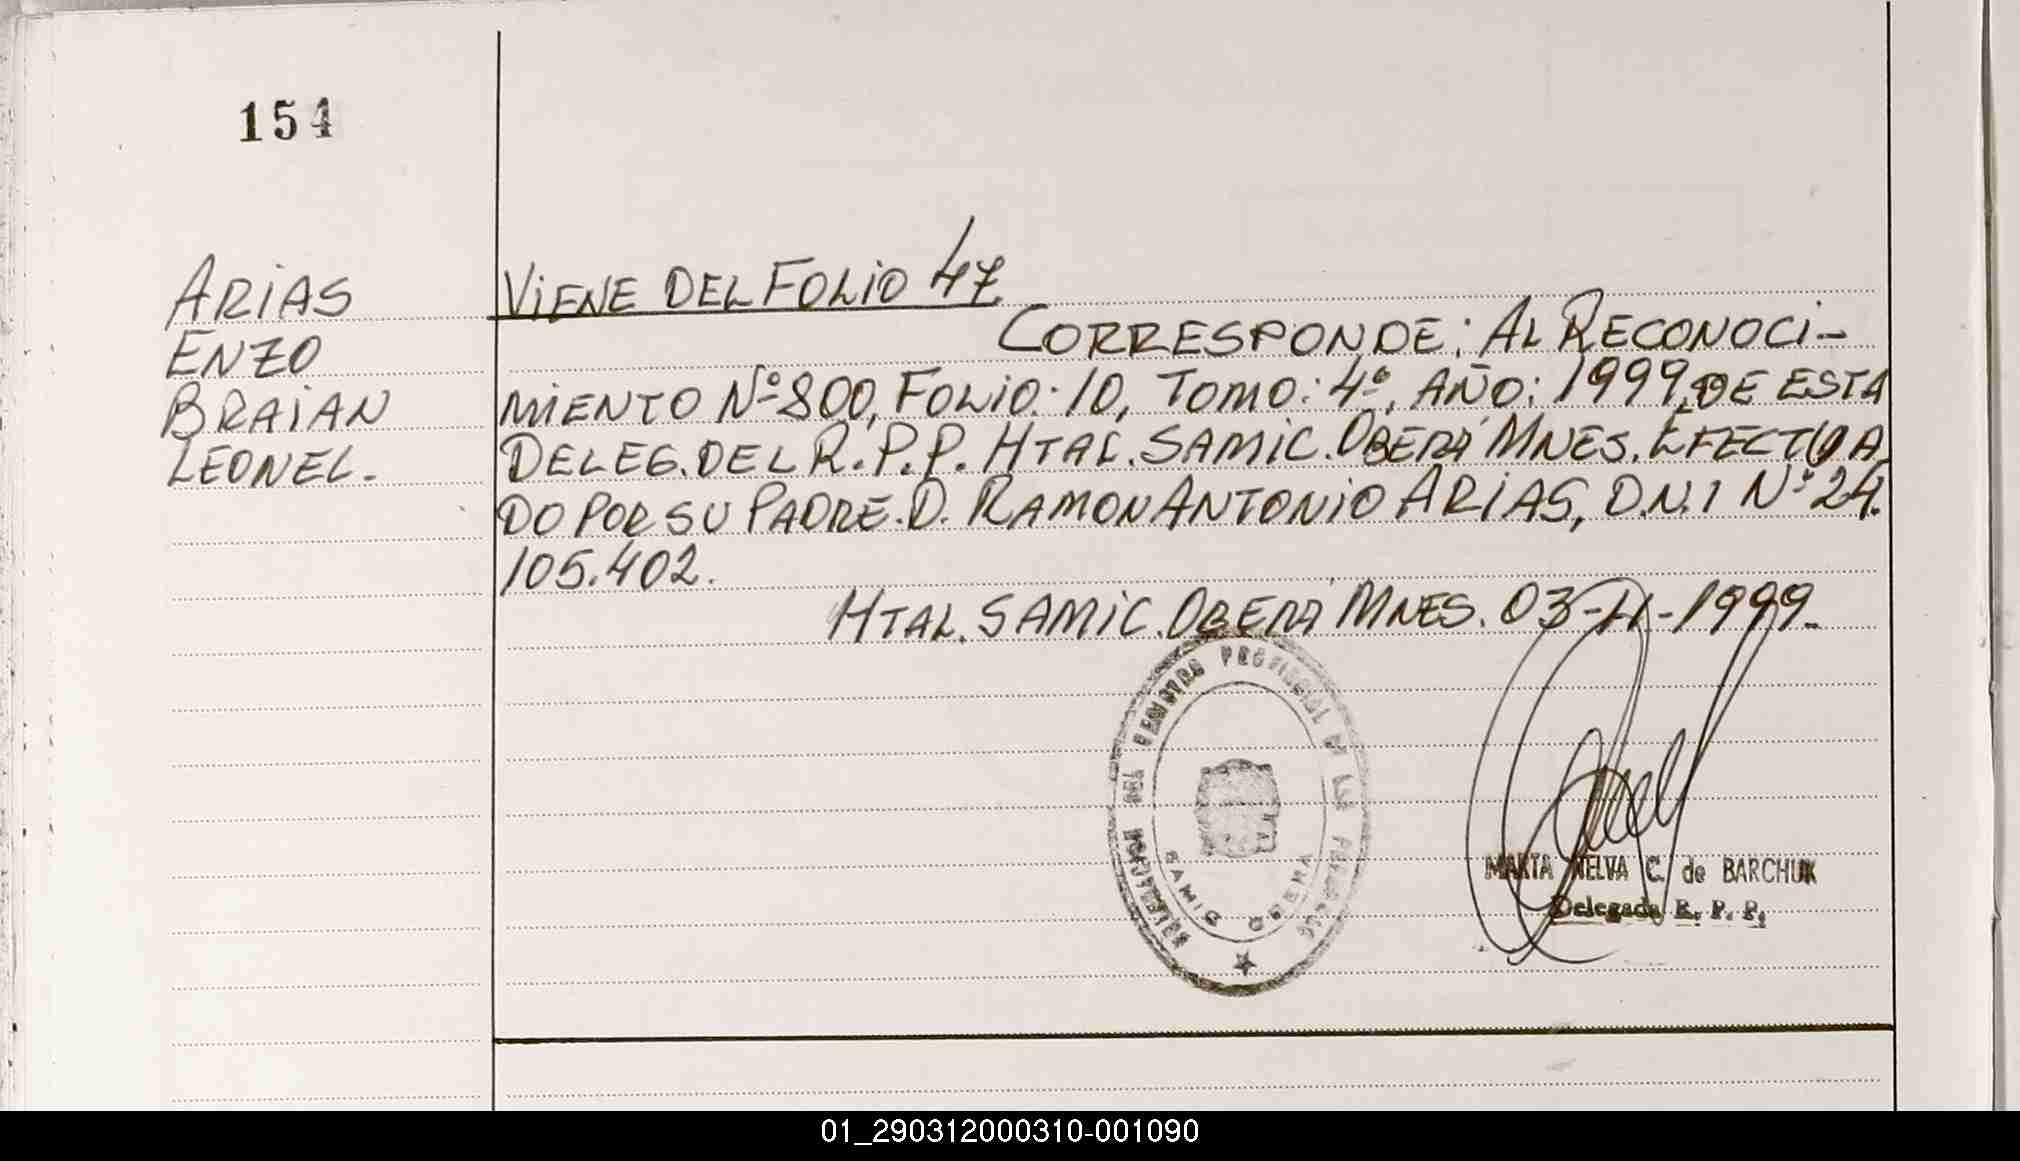 154
ARIAS
ENZO
BRAIAN
LEONEL.
VIENE DEL FOLIO 47
CORRESPONDE: AL RECONOCI-
MIENTO Nº 800, FOLIO: 10, TOMO: 4º, AÑO: 1999, DE ESTA
DELEG. DEL R.P.P. HTAL. SAMIC. OBERÁ MNES. EFECTUA
DO POR SU PADRE. D. RAMON ANTONIO ARIAS, D.N.I Nº 24.
105.402.
HTAL. SAMIC. OBERÁ MNES. 03-11-1999.
REGISTRO PROVINCIAL DE LAS PERSONAS
SAMIC OBERA
MARTA NELVA C. de BARCHUK
Delegada R. P. P.
01_290312000310-001090